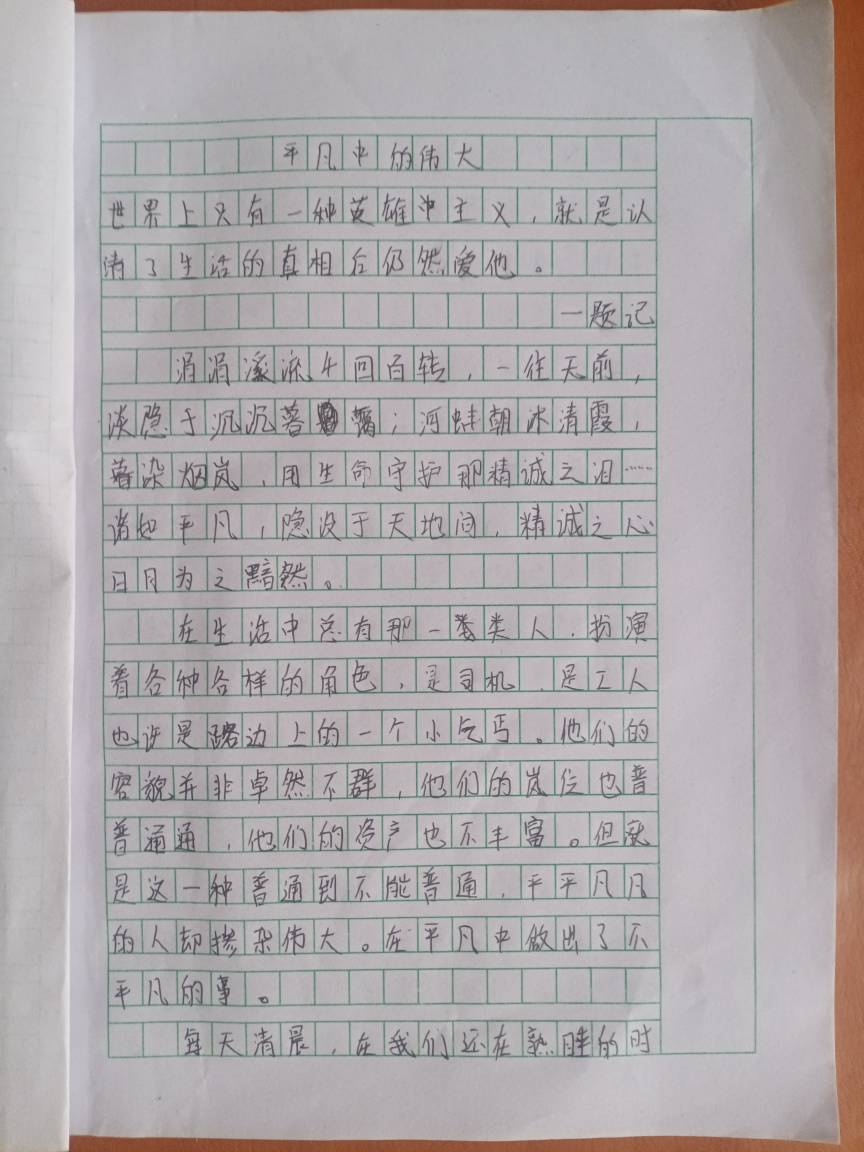 平凡中的伟大
世界上只有一种英雄中主义，就是认
清了生活的真相后仍然爱他。
一题记
涓涓溪流千回百转，一往天前，
淡隐于沉沉暮霭；河蚌朝沐清霞，
暮染烟岚，用生命守护那精诚之泪……
诸如平凡，隐没于天地间，精诚之心
日月为之黯然。
在生活中总有那一类人，扮演
着各种各样的角色，是司机，是工人
也许是路边上的一个小乞丐。他们的
容貌并非卓然不群，他们的岗位也普
普通通，他们的资产也不丰富。但就
是这一种普通到不能普通，平平凡凡
的人却掺杂伟大。在平凡中做出了不
平凡的事。
每天清晨，在我们还在熟睡的时